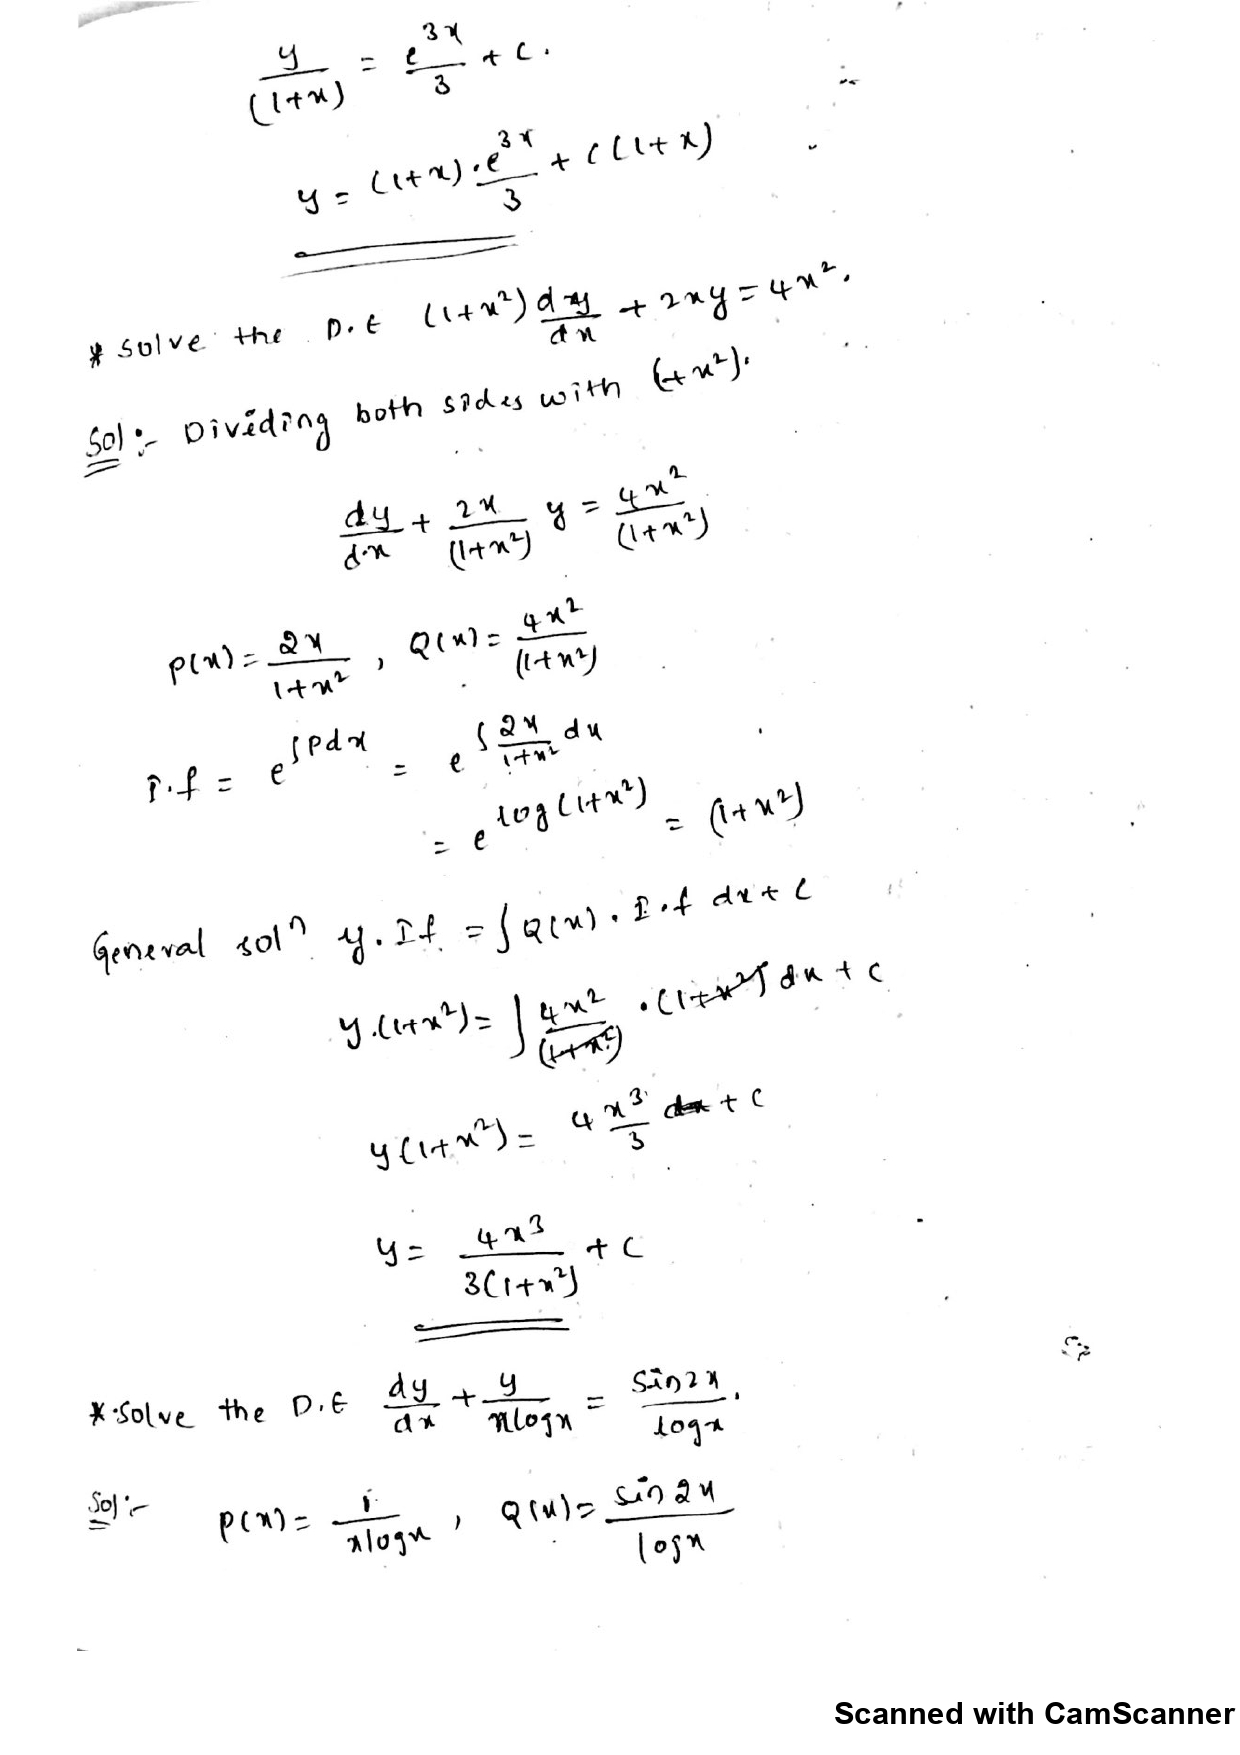 y/(1+x) = e^{3x}/3 + c.
y = (1+x) · e^{3x}/3 + c(1+x)
* Solve the D.E (1+x²) dy/dx + 2xy = 4x².
Sol:- Dividing both sides with (1+x²).
dy/dx + 2x/(1+x²) y = 4x²/(1+x²)
P(x) = 2x/1+x² , Q(x) = 4x²/(1+x²)
I.f = e^{∫Pdx} = e^{∫ 2x/1+x² dx}
= e^{log(1+x²)} = (1+x²)
General solⁿ y. If = ∫Q(x). I.f dx + c
y.(1+x²) = ∫ 4x²/(1+x²) · (1+x²) dx + c
y(1+x²) = 4 x³/3 + c
y = 4x³/3(1+x²) + c
* Solve the D.E dy/dx + y/xlogx = Sin2x/logx.
Sol:- P(x) = 1/xlogx , Q(x) = sin2x/logx
Scanned with CamScanner